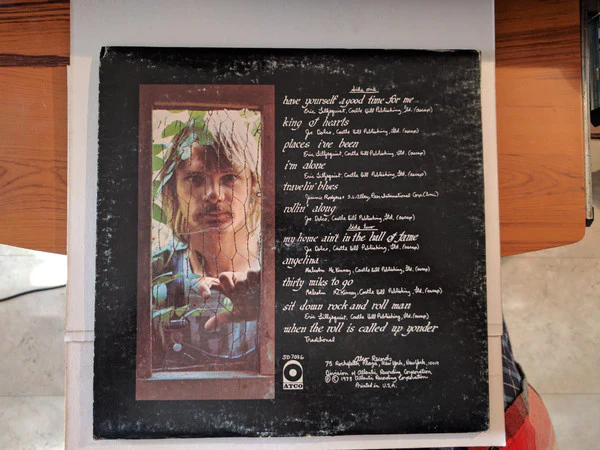 side one
have yourself a good time for me
Eric Lillyequist, Castle Hill Publishing, Ltd. (ascap)
king of hearts
Joe Dolce, Castle Hill Publishing, Ltd. (ascap)
places i've been
Eric Lillyequist, Castle Hill Publishing, Ltd. (ascap)
i'm alone
Eric Lillyequist, Castle Hill Publishing, Ltd. (ascap)
travelin' blues
Jimmie Rodgers & Peer International Corp. (bmi)
rollin' along
Joe Dolce, Castle Hill Publishing, Ltd. (ascap)
side two
my home ain't in the hall of fame
Joe Dolce, Castle Hill Publishing, Ltd. (ascap)
angelina
Malcolm McKinney, Castle Hill Publishing, Ltd. (ascap)
thirty miles to go
Malcolm McKinney, Castle Hill Publishing, Ltd. (ascap)
sit down rock and roll man
Eric Lillyequist, Castle Hill Publishing, Ltd. (ascap)
when the roll is called up yonder
Traditional
SD 7016
ATCO
Atco Records
75 Rockefeller Plaza, New York, New York, 10019
Division of Atlantic Recording Corporation
Ⓟ © 1973 Atlantic Recording Corporation
Printed in U.S.A.